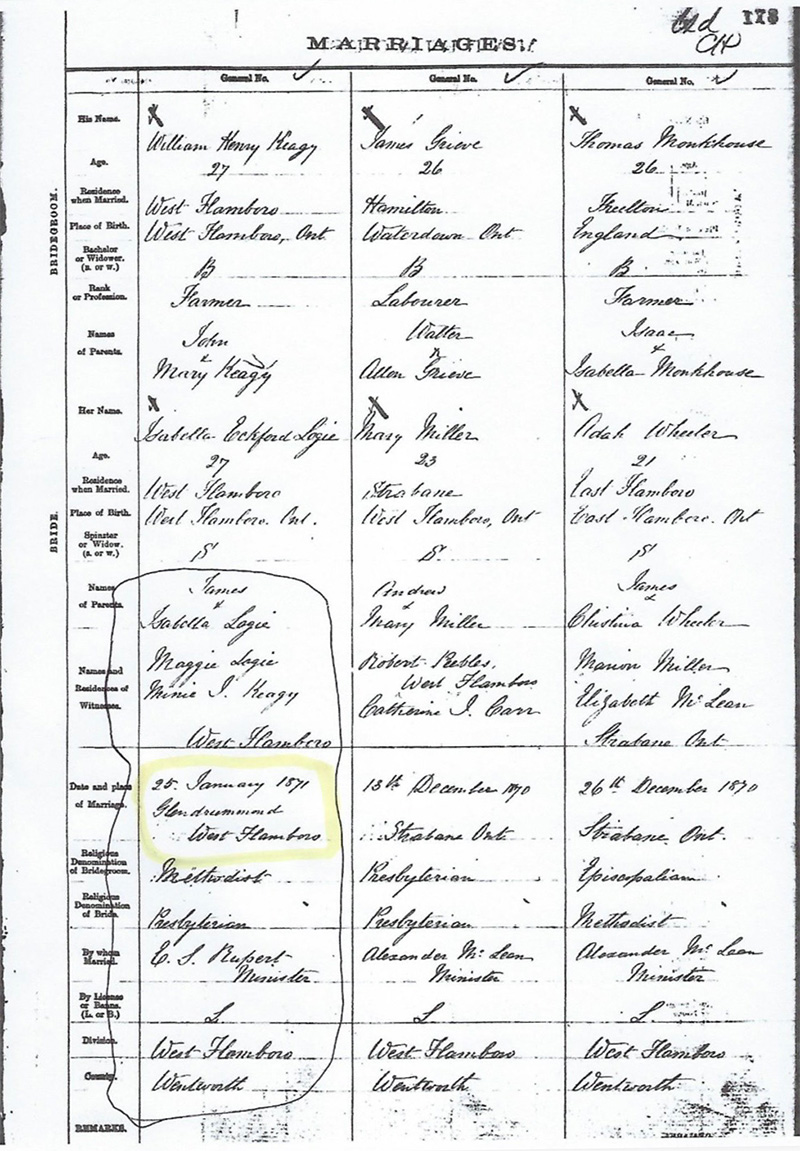 178
MARRIAGES.
General No. General No. General No.
BRIDEGROOM.
His Name. William Henry Keagy James Grieve Thomas Monkhouse
Age. 27 26 26
Residence when Married. West Flamboro Hamilton Freelton
Place of Birth. West Flamboro, Ont Waterdown Ont England
Bachelor or Widower. (B. or W.) B B B
Rank or Profession. Farmer Labourer Farmer
Names of Parents. John & Mary Keagy Walter & Allen Grieve Isaac & Isabella Monkhouse
BRIDE.
Her Name. Isabella Eckford Logie Mary Miller Adah Wheeler
Age. 27 23 21
Residence when Married. West Flamboro Strabane East Flamboro
Place of Birth. West Flamboro. Ont. West Flamboro, Ont East Flamboro. Ont
Spinster or Widow. (S. or W.) S S S
Names of Parents. James & Isabella Logie Andrew & Mary Miller James & Chistina Wheeler
Names and Residences of Witnesses. Maggie Logie Minie J. Keagy West Flamboro Robert Peebles, West Flamboro Catherine J. Carr Marion Miller Elizabeth McLean Strabane Ont
Date and place of Marriage. 25. January 1871 Glendrummond West Flamboro 13th December 1870 Strabane Ont. 26th December 1870 Strabane Ont.
Religious Denomination of Bridegroom. Methodist Presbyterian Episcopalian
Religious Denomination of Bride. Presbyterian Presbyterian Methodist
By whom Married. E. S. Rupert Minister Alexander McLean Minister Alexander McLean Minister
By License or Banns. (L. or B.) L L L
Division. West Flamboro West Flamboro West Flamboro
County. Wentworth Wentworth Wentworth
REMARKS.